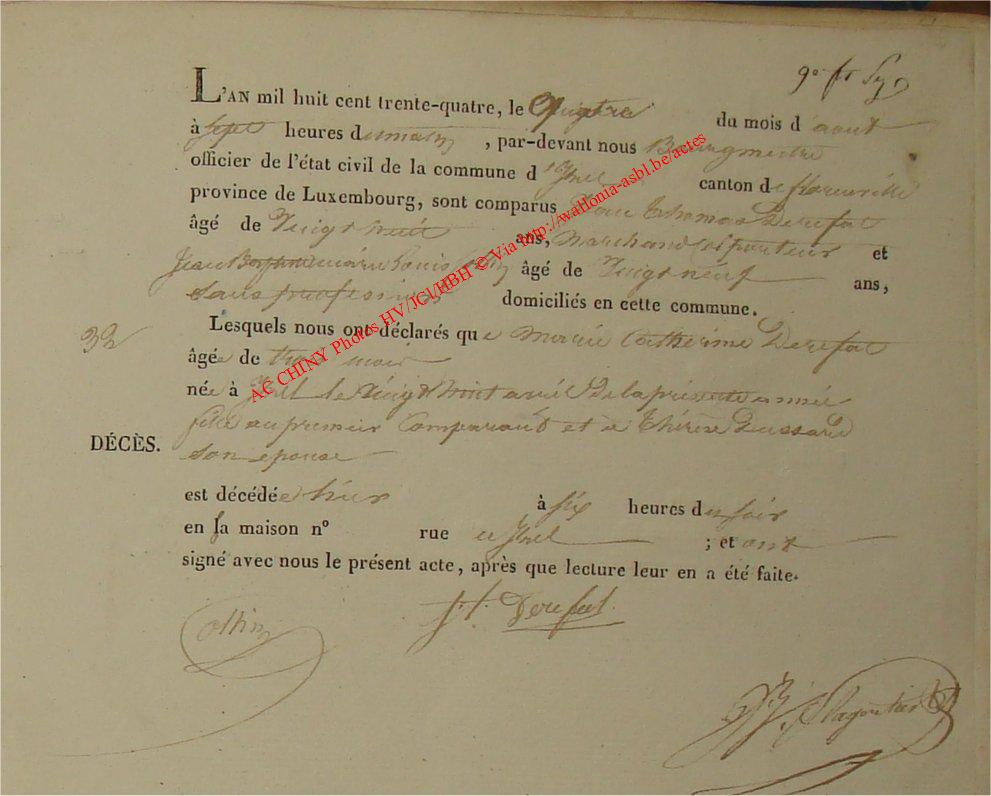 9e
L'AN mil huit cent trente-quatre, le quatre du mois d'aout
à sept heures du matin, par-devant nous Bourgmestre
officier de l'état civil de la commune d'Izel canton de florenville
province de Luxembourg, sont comparus Thomas Derefat
âgé de Vingt huit ans, marchand colporteur et
Jean marie Louis Collin âgé de Vingt neuf ans,
sans profession domiciliés en cette commune.
Lesquels nous ont déclarés que Marie Catherine Derefat
32
âgée de trois mois
née à Izel le Vingt huit avril de la présente année
fille au premier Comparant et à Thérèse Dussard
DÉCÈS.
son epouse
est décédée hier à six heures du soir
en sa maison n° rue à Izel ; et ont
signé avec nous le présent acte, après que lecture leur en a été faite.
Collin
Derefat
AC CHINY Photos HV/JCL/HBH © Via http://wallonia-asbl.be/actes